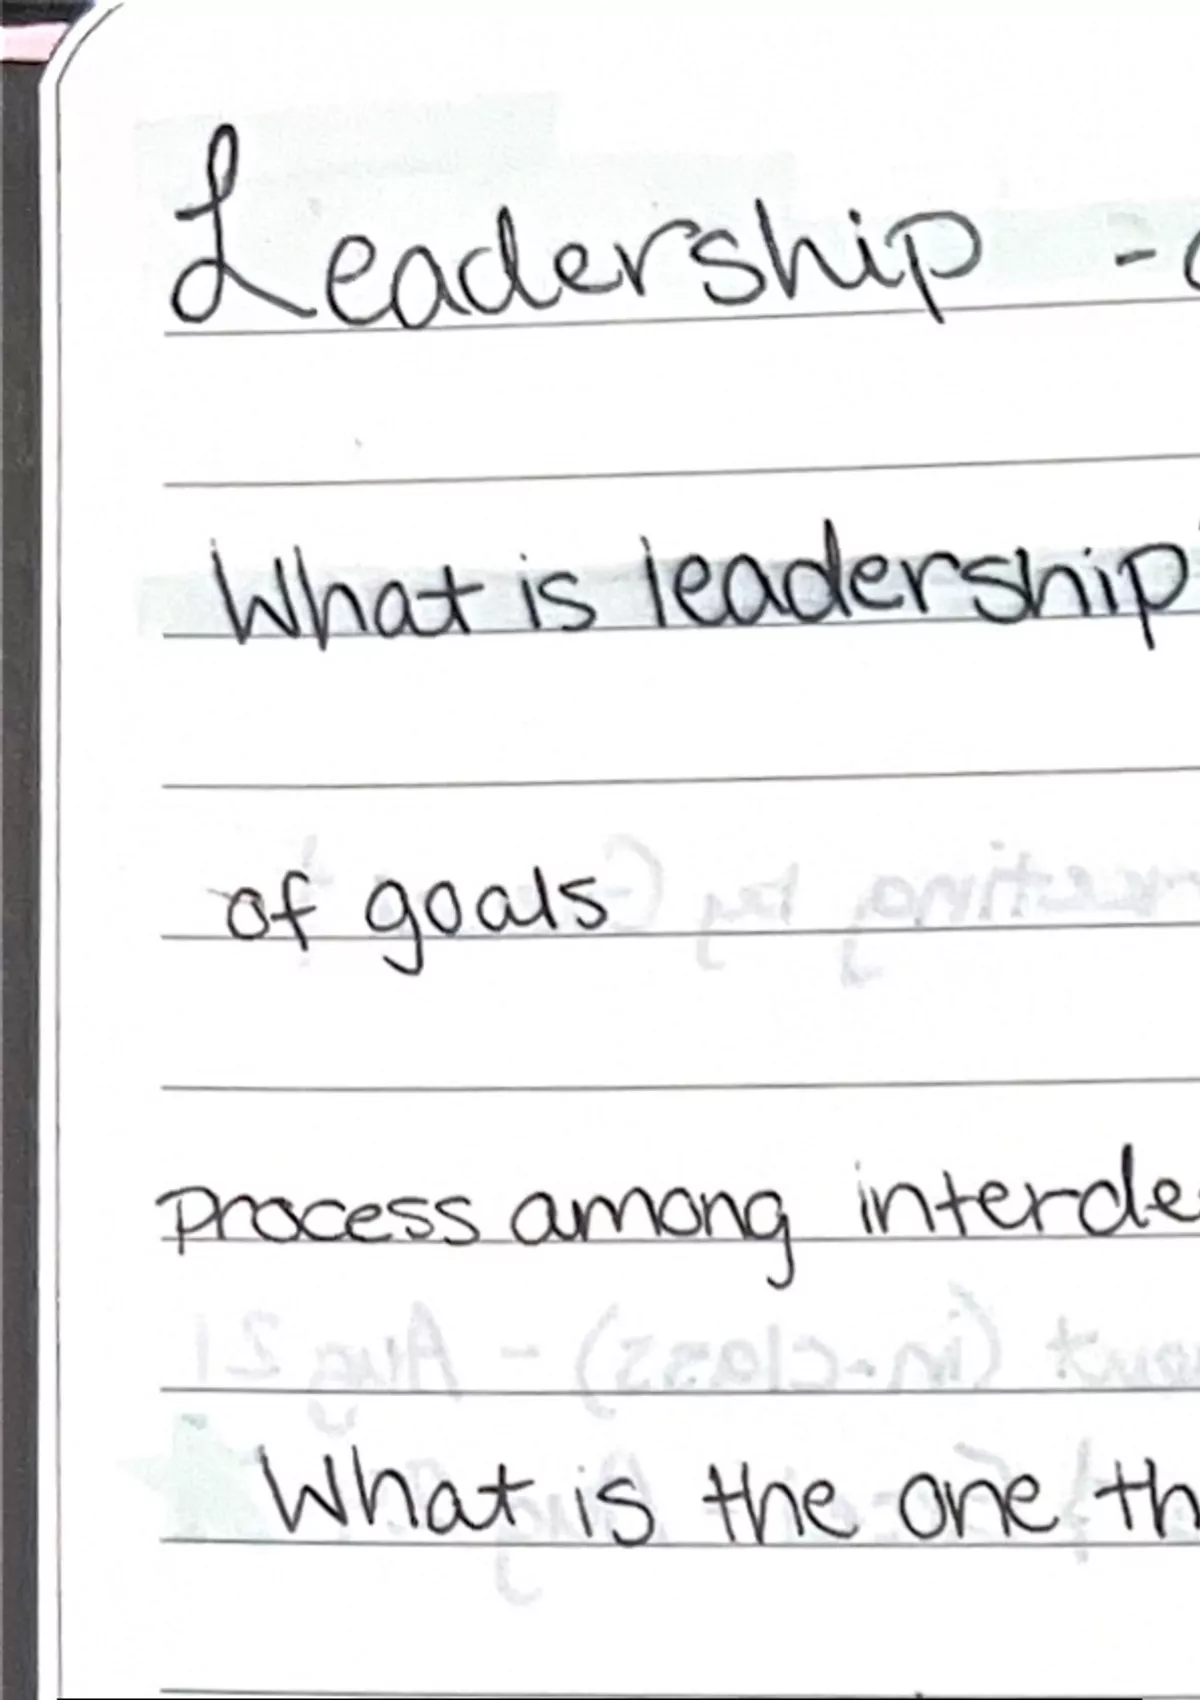 Leadership -
What is leadership
of goals
process among interde
What is the one th